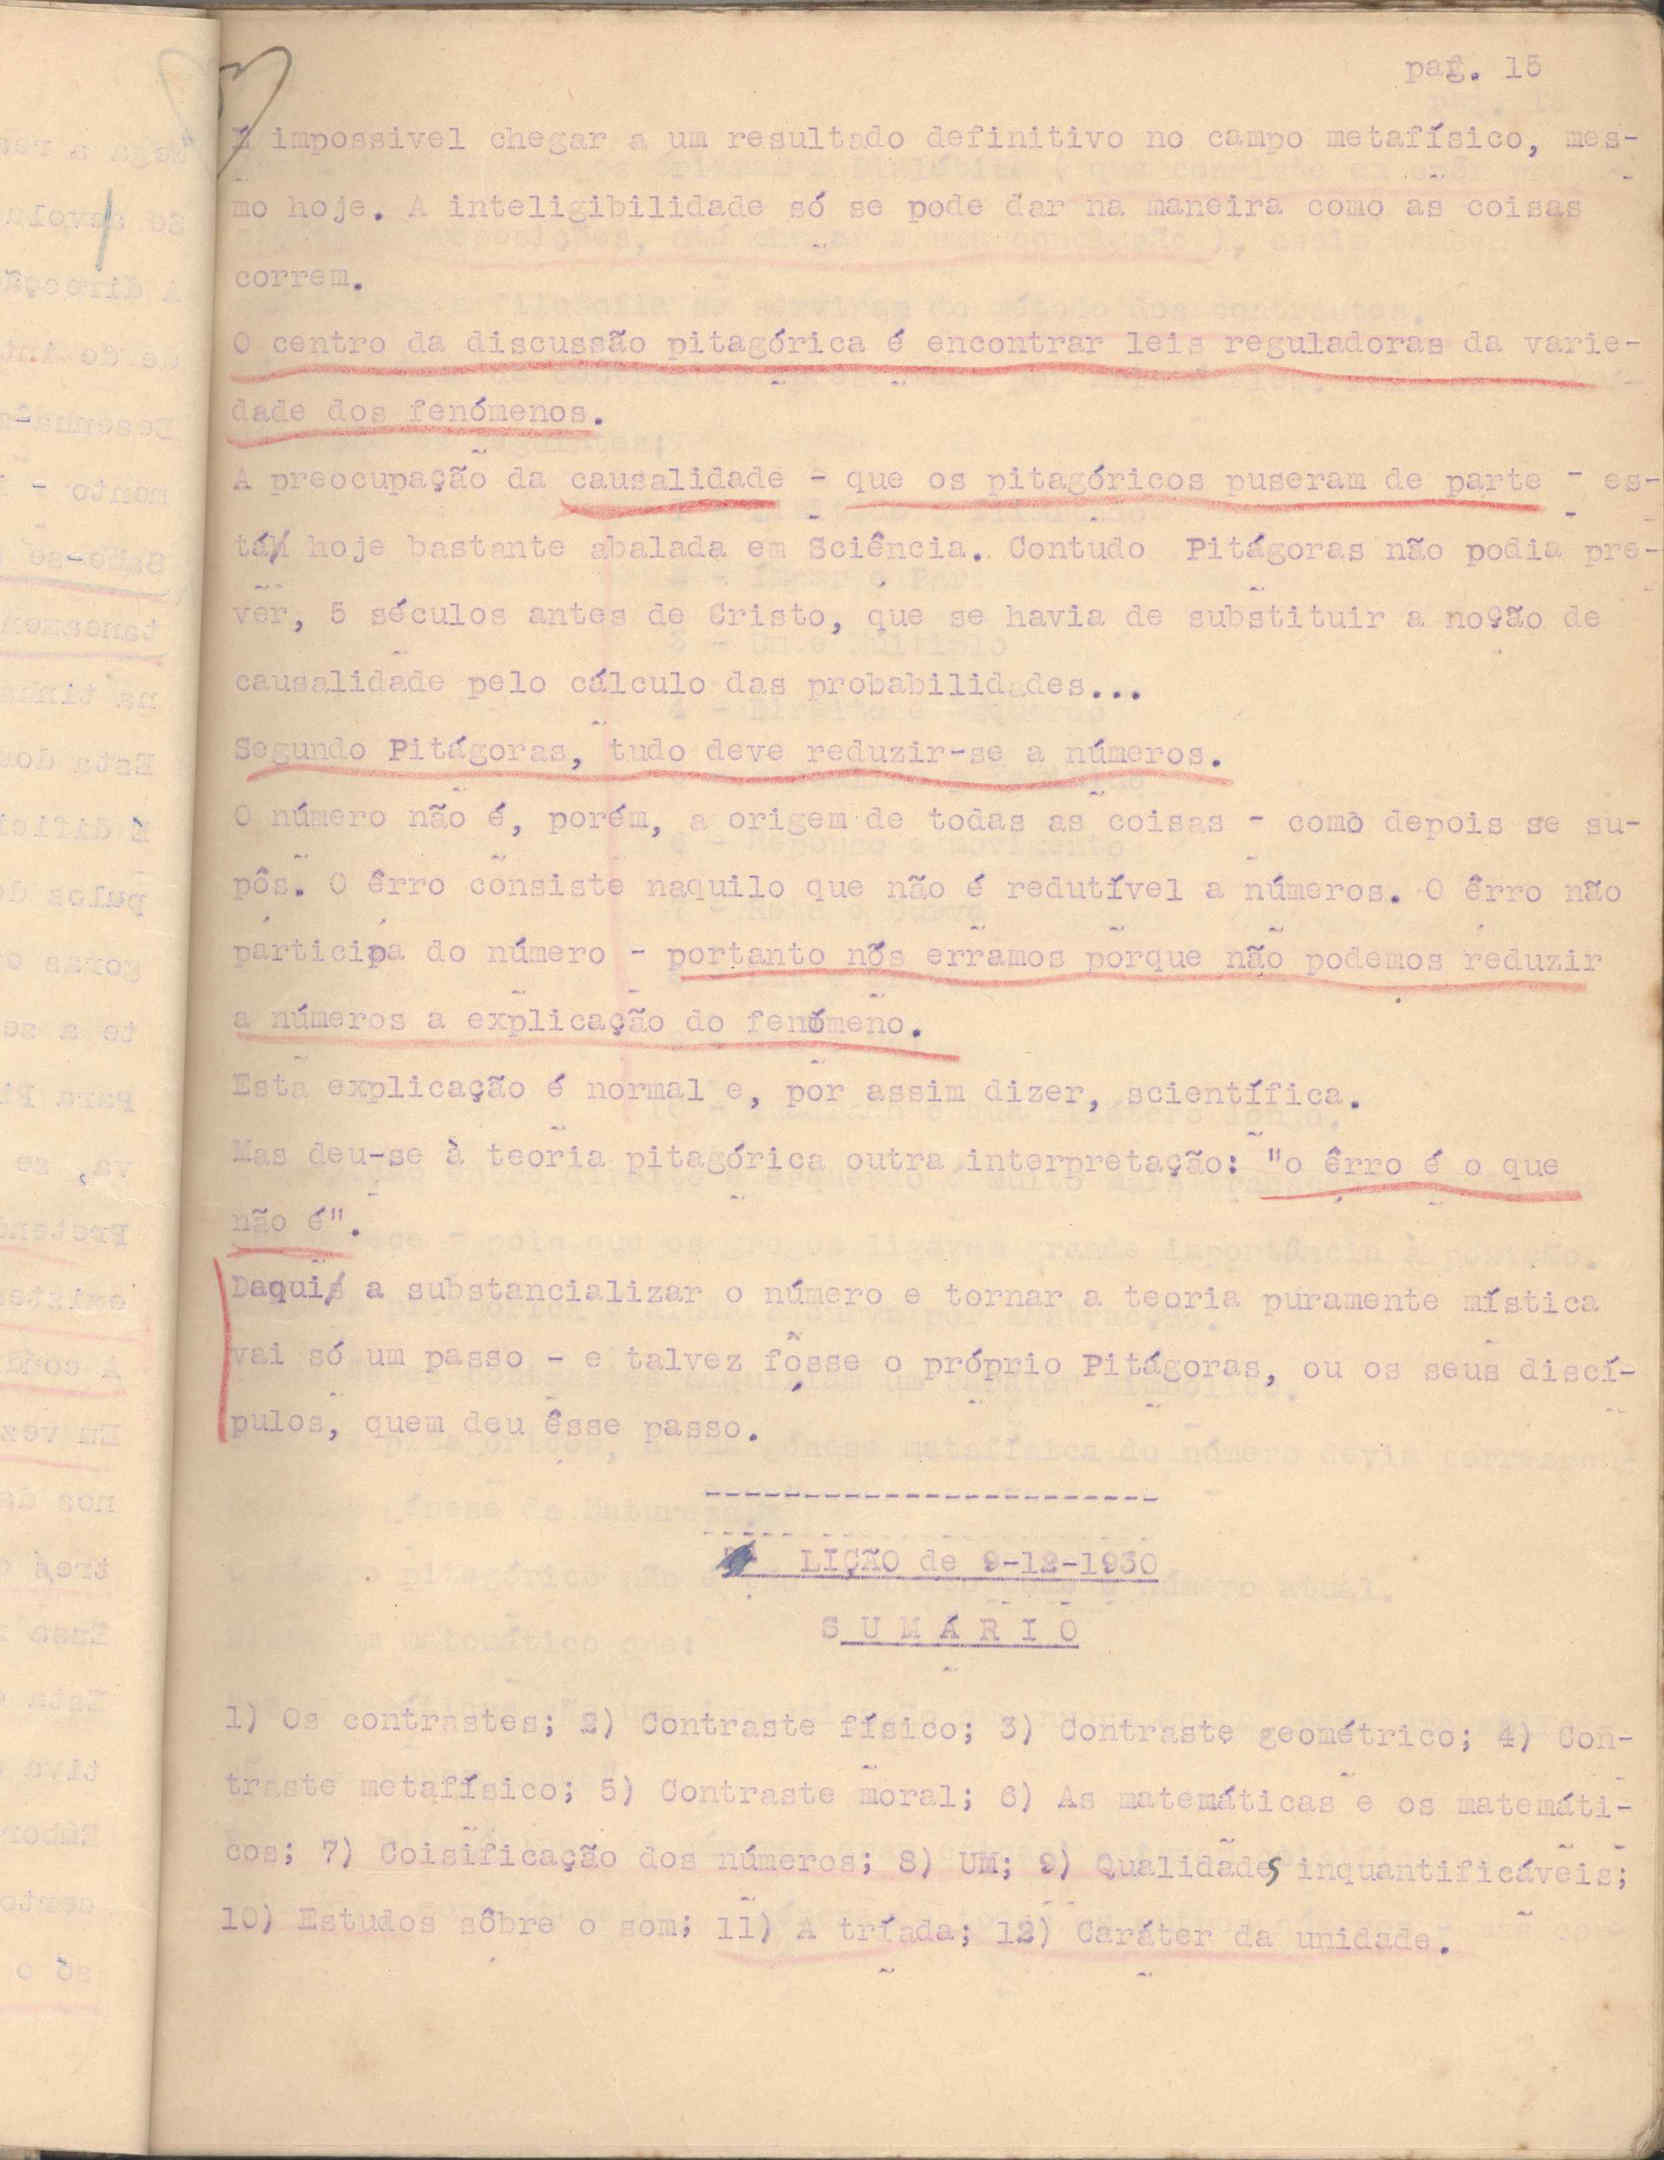 pag. 15
É impossivel chegar a um resultado definitivo no campo metafísico, mes-
mo hoje. A inteligibilidade só se pode dar na maneira como as coisas
correm.
O centro da discussão pitagórica é encontrar leis reguladoras da varie-
dade dos fenómenos.
A preocupação da causalidade - que os pitagóricos puseram de parte - es-
tá hoje bastante abalada em Sciência. Contudo Pitágoras não podia pre-
vêr, 5 séculos antes de Cristo, que se havia de substituir a noção de
causalidade pelo cálculo das probabilidades...
Segundo Pitágoras, tudo deve reduzir-se a números.
O número não é, porém, a origem de todas as coisas - como depois se su-
pôs. O êrro consiste naquilo que não é redutível a números. O êrro não
participa do número - portanto nós erramos porque não podemos reduzir
a números a explicação do fenómeno.
Esta explicação é normal e, por assim dizer, scientífica.
Mas deu-se à teoria pitagórica outra interpretação: "o êrro é o que
não é".
Daqui a substancializar o número e tornar a teoria puramente mística
vai só um passo - e talvez fôsse o próprio Pitágoras, ou os seus discí-
pulos, quem deu êsse passo.
------------------------
LIÇÃO de 9-12-1930
S U M Á R I O
1) Os contrastes; 2) Contraste físico; 3) Contraste geométrico; 4) Con-
traste metafísico; 5) Contraste moral; 6) As matemáticas e os matemáti-
cos; 7) Coisificação dos números; 8) UM; 9) Qualidades inquantificáveis;
10) Estudos sôbre o som; 11) A tríada; 12) Caráter da unidade.